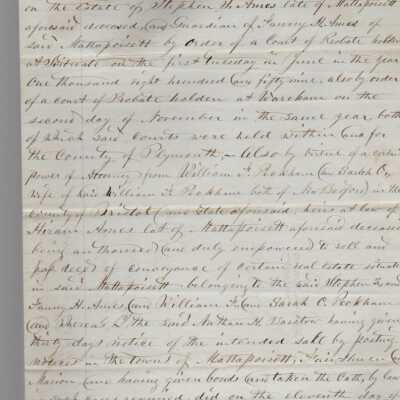 on the Estate of Stephen H. Ames late of Mattapoisett
aforesaid deceased, and Guardian of Fanny H. Ames of
said Mattapoisett by order of a Court of Probate holden
at Scituate on the first Tuesday in June in the year
One thousand eight hundred and fifty nine, also by order
of a Court of Probate holden at Wareham on the
second day of November in the same year both
of which said Courts were held within and for
the County of Plymouth, Also by virtue of a certain
power of Attorney from William F. Peckham and Sarah C.
wife of said William F. Peckham both of New Bedford in the
County of Bristol and State aforesaid, heirs at law of
Hiram Ames late of Mattapoisett aforesaid deceased
being authorized and duly empowered to sell and
pass deeds of conveyance of certain real estate situate
in said Mattapoisett belonging to the said Stephen H. and
Fanny H. Ames and William F. and Sarah C. Peckham
and whereas I the said Nathan H. Barstow having given
thirty days notice of the intended sale by posting
notices in the towns of Mattapoisett, Fairhaven and
Marion and having given bonds and taken the Oath, by law
did on the eleventh day of